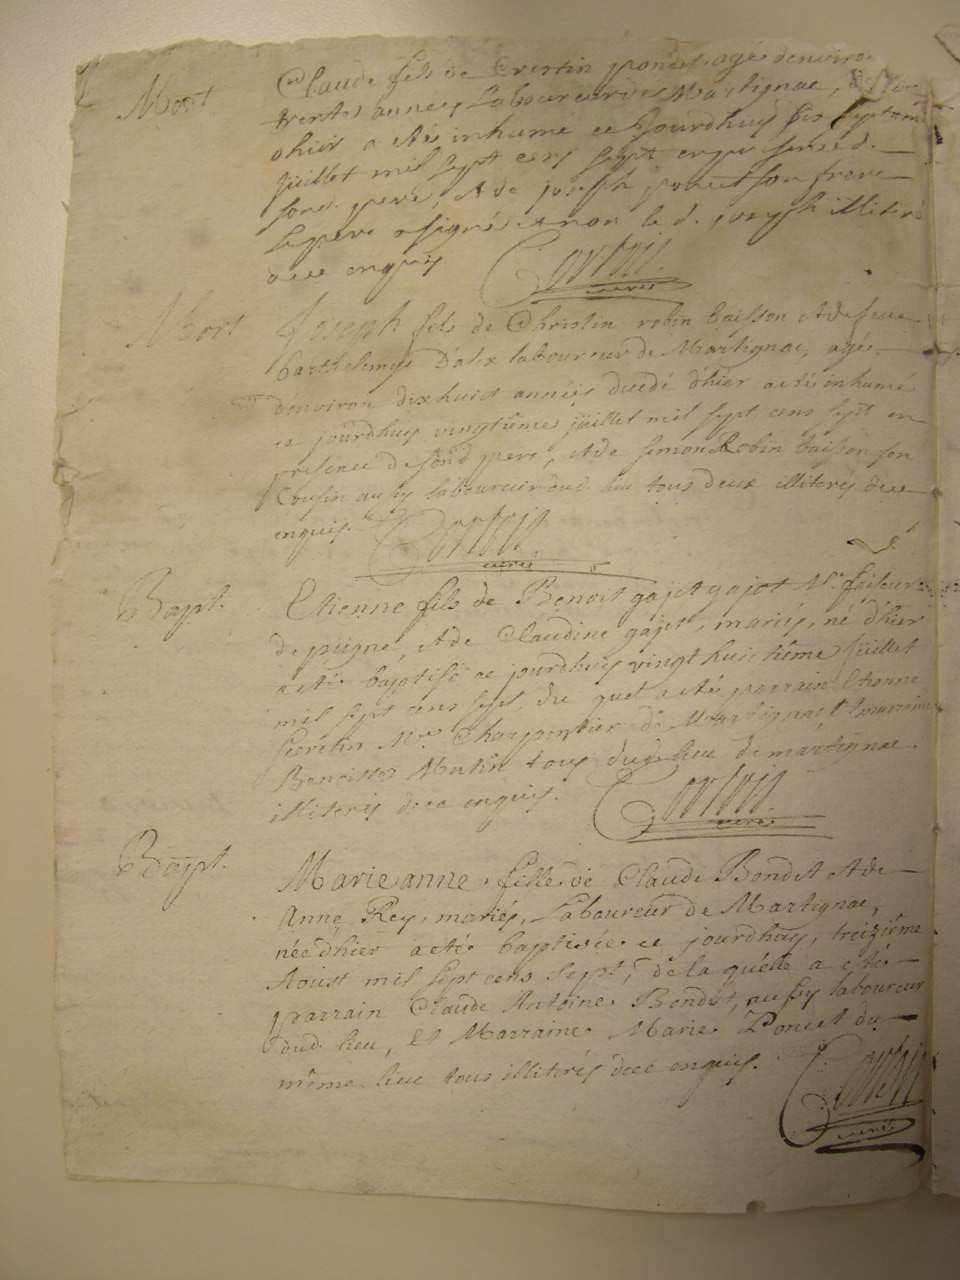 Mort
Claude fils de Crestin poncet agé denviron
trente années Laboureur de Martignac,
d'hier a esté inhumé ce Jourdhuy dix sept
Juillet mil sept cens sept en presence de
sond. pere, et de joseph poncet son frere
le pere a signé et non le d. joseph illiteré
de ce enquis
Cortois
curé
Mort
Joseph fils de Christin robin baisson et de feue
barthelmye Dalix laboureur de Martignac, agé
d'environ dix huict années decedé d'hier a esté inhumé
ce jourdhuy vingtième juillet mil sept cens sept en
presence de sond pere, et de simon Robin baisson son
Cousin aussy laboureur dud. lieu tous deux illiterés de ce
enquis.
Cortois
curé
Bapt.
Etienne fils de Benoit gajot gajot Mre. faiseur
de peigne, et de Claudine gajet, mariés, né d'hier
a esté baptisé ce jourdhuy vingt huictième juillet
mil sept cens sept, du quel a esté parrain Etienne
Mre Charpentier de Martignac et marraine
Benoiste Mutin tous dud. lieu de martignac
illiterés de ce enquis.
Cortois
curé
Bapt.
Marie anne, fille de Claude Bondet et de
Anne Rey, mariés, Laboureur de Martignac,
née d'hier a esté baptisée ce jourdhuy, treizième
Aoust mil sept cens sept, de la quelle a esté
parrain Claude Antoine Bondet, aussy laboureur
dud. lieu, et Marraine Marie Poncet du
même lieu tous illiterés de ce enquis.
Cortois
curé